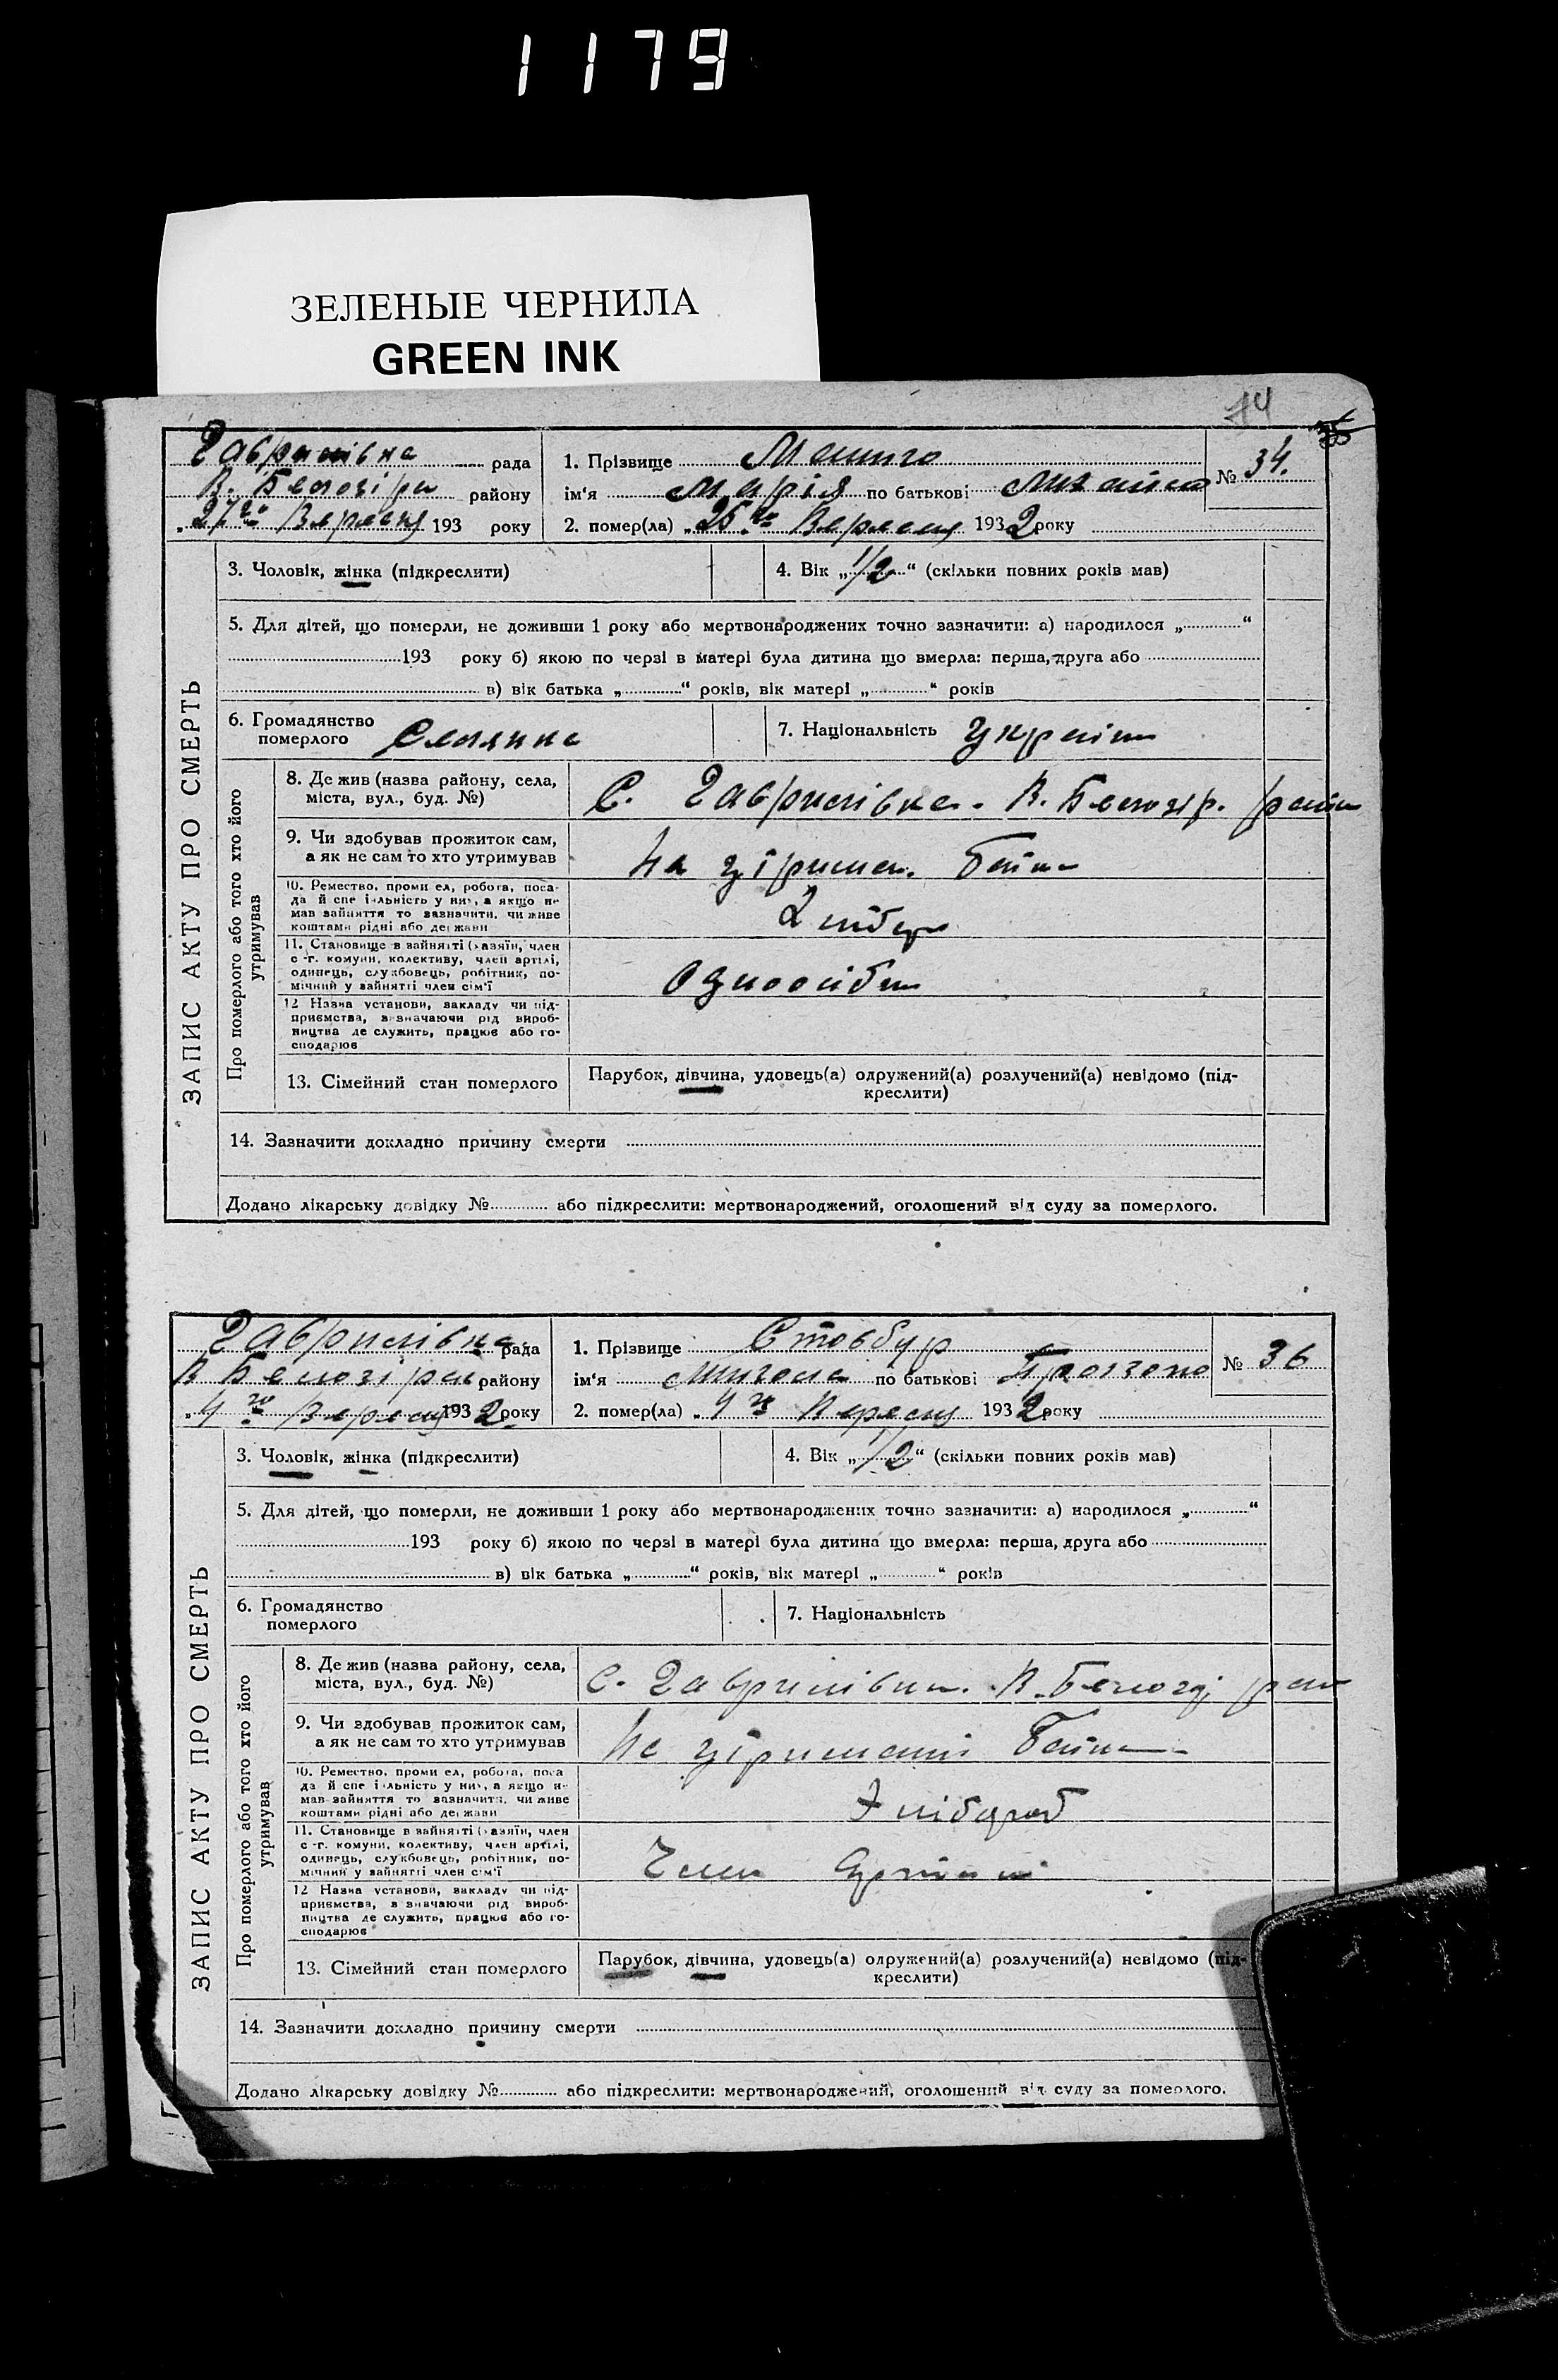 1179
ЗЕЛЕНЫЕ ЧЕРНИЛА
GREEN INK
74
Гаврилівка рада
В. Білозірка району
27го Вересня 193 року
1. Прізвище
ім‘я Марія по батькові
№ 34.
2. помер(ла) „26го Вересня 1932 року
ЗАПИС АКТУ ПРО СМЕРТЬ
3. Чоловік, жінка (підкреслити)
4. Вік „1/2“ (скільки повних років мав)
5. Для дітей, що померли, не доживши 1 року або мертвонароджених точно зазначити: а) народилося „ “
193 року б) якою по черзі в матері була дитина що вмерла: перша, друга або
в) вік батька „ “ років, вік матері „ “ років
6. Громадянство
померлого Селянка
7. Національність Україн
Про померлого або того хто його
утримував
8. Де жив (назва району, села,
міста, вул., буд. №)
С. Гаврилівка. В. Білозір. район
9. Чи здобував прожиток сам,
а як не сам то хто утримував
На утриман. батька
10. Ремество, проми ел, робота, поса-
да й спе іальність у них, а якщо не
мав зайняття то зазначити, чи живе
коштами рідні або держави
Хлібор
11. Становище в зайнятті (хазяїн, член
с-г. комуни, колективу, член артілі,
одинець, службовець, робітник, по-
мічний у зайнятті член сім‘ї
Одноосібн
12 Назва установи, закладу чи під-
приємства, зазначаючи рід вироб-
ництва де служить, працює або го-
сподарює
13. Сімейний стан померлого
Парубок, дівчина, удовець(а) одружений(а) розлучений(а) невідомо (під-
креслити)
14. Зазначити докладно причину смерти
Додано лікарську довідку № або підкреслити: мертвонароджений, оголошений від суду за померлого.
Гаврилівка рада
В Білозірка району
„4го Вересня 1932 року
1. Прізвище Стовбур
ім‘я Микола по батькові
№ 36
2. помер(ла) „4го Вересня 1932 року
ЗАПИС АКТУ ПРО СМЕРТЬ
3. Чоловік, жінка (підкреслити)
4. Вік „1/2“ (скільки повних років мав)
5. Для дітей, що померли, не доживши 1 року або мертвонароджених точно зазначити: а) народилося „ “
193 року б) якою по черзі в матері була дитина що вмерла: перша, друга або
в) вік батька „ “ років, вік матері „ “ років
6. Громадянство
померлого
7. Національність
Про померлого або того хто його
утримував
8. Де жив (назва району, села,
міста, вул., буд. №)
С. Гаврилівка. В. Білозір район
9. Чи здобував прожиток сам,
а як не сам то хто утримував
На утриманні батька
10. Ремество, проми ел, робота, поса
да й спе іальність у них, а якщо не
мав зайняття то зазначити, чи живе
коштами рідні або держави
Хлібороб
11. Становище в зайнятті (хазяїн, член
с-г. комуни, колективу, член артілі,
одинець, службовець, робітник, по-
мічний у зайнятті член сім‘ї
Член Артілі
12 Назва установи, закладу чи під-
приємства, зазначаючи рід вироб-
ництва де служить, працює або го-
сподарює
13. Сімейний стан померлого
Парубок, дівчина, удовець(а) одружений(а) розлучений(а) невідомо (під-
креслити)
14. Зазначити докладно причину смерти
Додано лікарську довідку № або підкреслити: мертвонароджений, оголошений від суду за померлого.